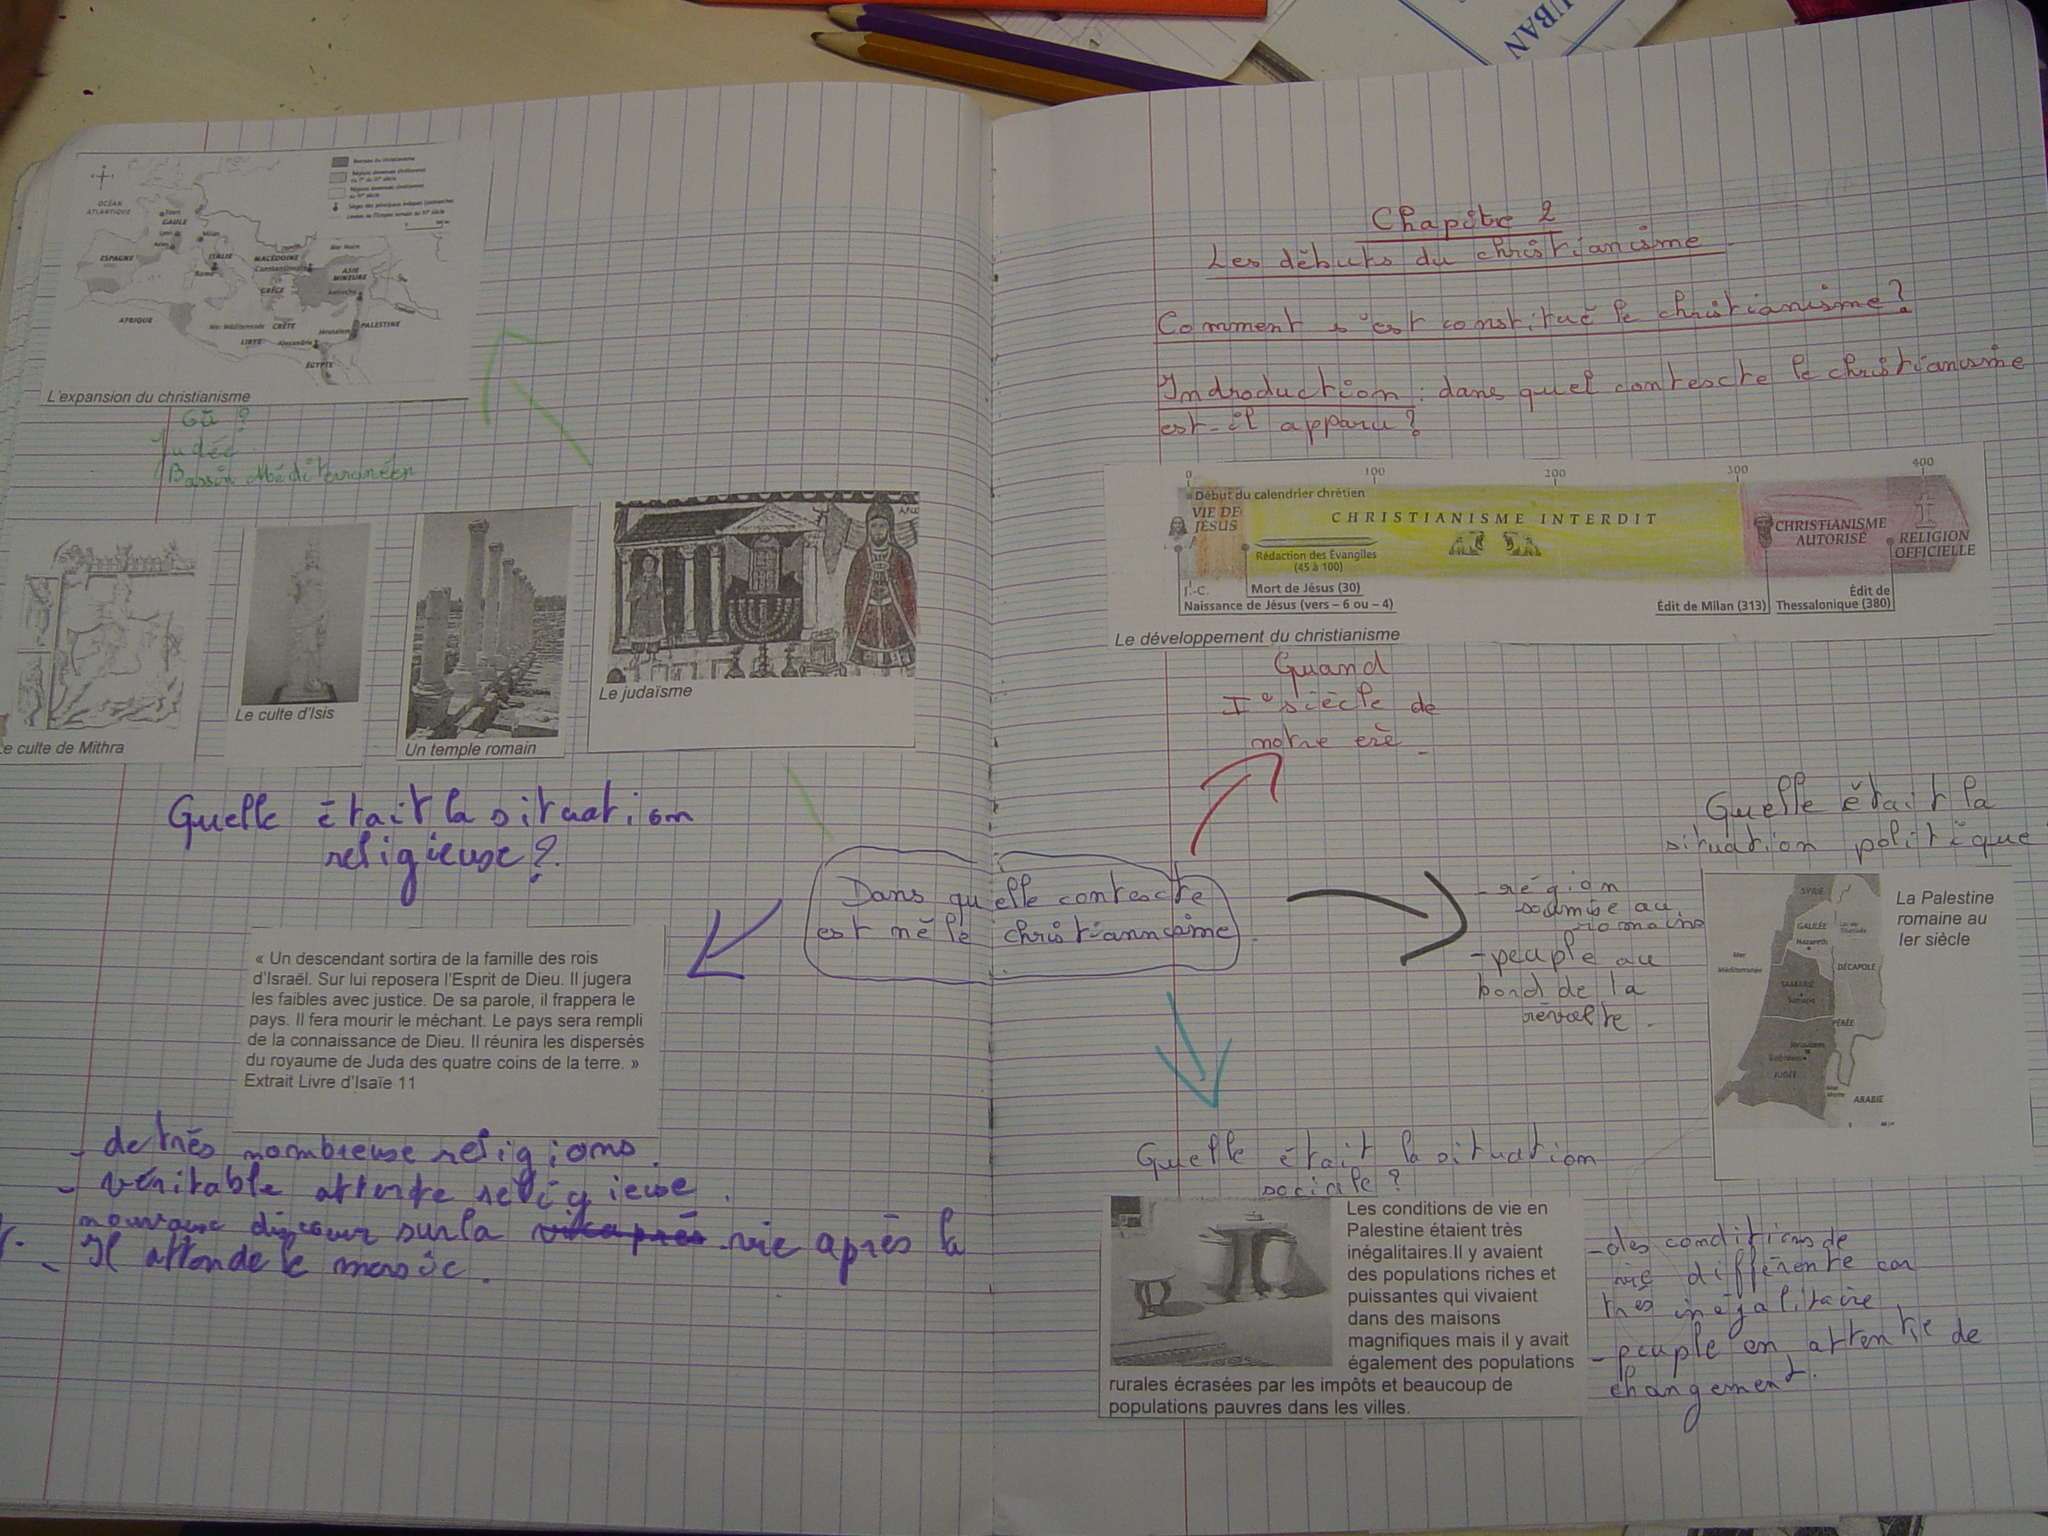 UBAN
OCÉAN
ATLANTIQUE
Tours
GAULE
Lyon
Arles
Milan
ESPAGNE
ITALIE
Rome
MACÉDOINE
Constantinople
Mer Noire
ASIE
MINEURE
GRÈCE
Antioche
AFRIQUE
Mer Méditerranée
CRÈTE
Jérusalem
PALESTINE
LIBYE
Alexandrie
ÉGYPTE
L'expansion du christianisme
Où ?
Judée
Bassin Méditerranéen
e culte de Mithra
Le culte d'Isis
Un temple romain
Le judaïsme
Quelle était la situation
religieuse ?
« Un descendant sortira de la famille des rois
d'Israël. Sur lui reposera l'Esprit de Dieu. Il jugera
les faibles avec justice. De sa parole, il frappera le
pays. Il fera mourir le méchant. Le pays sera rempli
de la connaissance de Dieu. Il réunira les dispersés
du royaume de Juda des quatre coins de la terre. »
Extrait Livre d'Isaïe 11
- de très nombreuse religions.
- véritable attente religieuse.
sur la vie après la
- Il attende le
Chapitre 2
Les débuts du christianisme.
Comment s'est constitué le christianisme ?
Indroduction : dans quel contescte le christianisme
est-il apparu ?
0 100 200 300 400
Début du calendrier chrétien
VIE DE
JÉSUS
CHRISTIANISME INTERDIT
Rédaction des Évangiles
(45 à 100)
CHRISTIANISME
AUTORISÉ
RELIGION
OFFICIELLE
J.-C.
Mort de Jésus (30)
Naissance de Jésus (vers – 6 ou – 4)
Édit de Milan (313)
Édit de
Thessalonique (380)
Le développement du christianisme
Quand
I° siècle de
notre erè
Dans quelle contescte
est né le christiannisme
Quelle était la
situation politique
- région
soumise au
romains
- peuple au
bord de la
révolte.
La Palestine
romaine au
Ier siècle
SYRIE
GALILÉE
Nazareth
Mer
Méditerranée
DÉCAPOLE
SAMARIE
PÉRÉE
Jérusalem
Bethléem
JUDÉE
Mer
Morte
ARABIE
Quelle était la situation
sociale ?
Les conditions de vie en
Palestine étaient très
inégalitaires.Il y avaient
des populations riches et
puissantes qui vivaient
dans des maisons
magnifiques mais il y avait
également des populations
rurales écrasées par les impôts et beaucoup de
populations pauvres dans les villes.
- des conditions de
vie différente car
très inégalitaire
- peuple en attente de
changement.